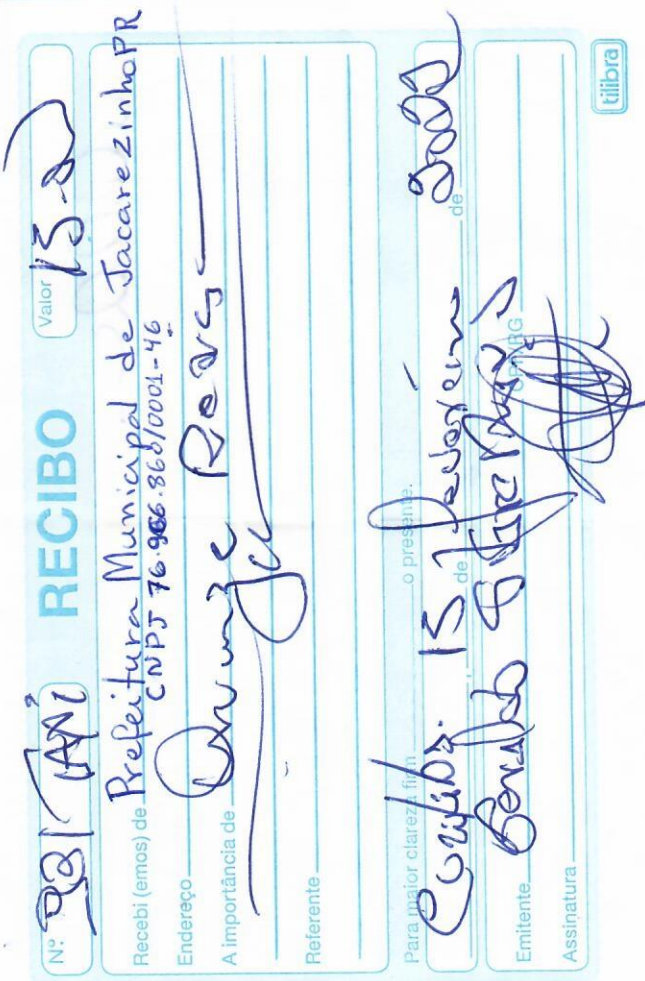 Nº TAXI RECIBO Valor 15
Recebi (emos) de Prefeitura Municipal de Jacarezinho PR
CNPJ 76.966.860/0001-46
Endereço
A importância de Quinze Reais
Referente
Para maior clareza firm o presente.
Curitiba. 15 de Fevereiro de
Emitente Geraldo CPF/RG
Assinatura
tilibra